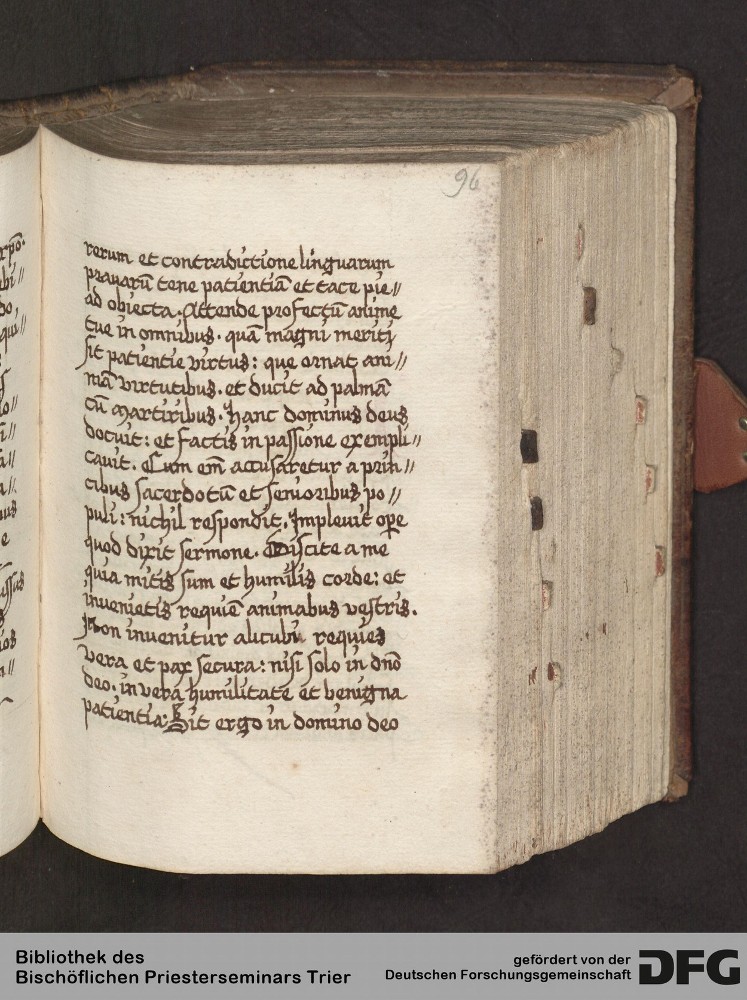 96
rerum et contradictione linguarum
pravarū tene patientiā et tace pie//
ad obiecta. Attende profectū anime
tue in omnibus. quā magni meriti
sit patientie virtus: que ornat ani//
mā virtutibus. et ducit ad palmā
cū martiribus. Hanc dominus deus
docuit: et factis in passione exempli//
cavit. Cum em̄ accusaretur a prin//
cibus sacerdotū et senioribus po//
puli: nichil respondit. Implevit ope
quod dixit sermone. Discite a me
quia mitis sum et humilis corde: et
invenietis requiē animabus vestris.
Non invenitur alicubi requies
vera et pax secura: nisi solo in dn̄o
deo. in vera humilitate et benigna
patientia: Sit ergo in domino deo
Bibliothek des
Bischöflichen Priesterseminars Trier
gefördert von der
Deutschen Forschungsgemeinschaft
DFG